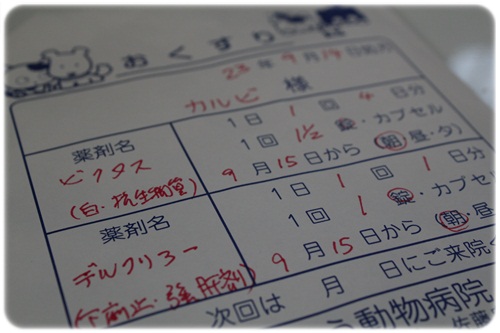 おくすり
23年9月14日
カルビ 様
薬剤名
ビクタス
(白・抗生物質)
1日 1回 4日分
1回 1/2 錠・カプセル
9月15日から (朝・昼・夕)
薬剤名
デルクリアー
(下痢止・強肝剤)
1日 1回 1日分
1回 1 錠・カプセ
9月15日から (朝・昼
次回は 月 日にご来院
動物病院
佐藤